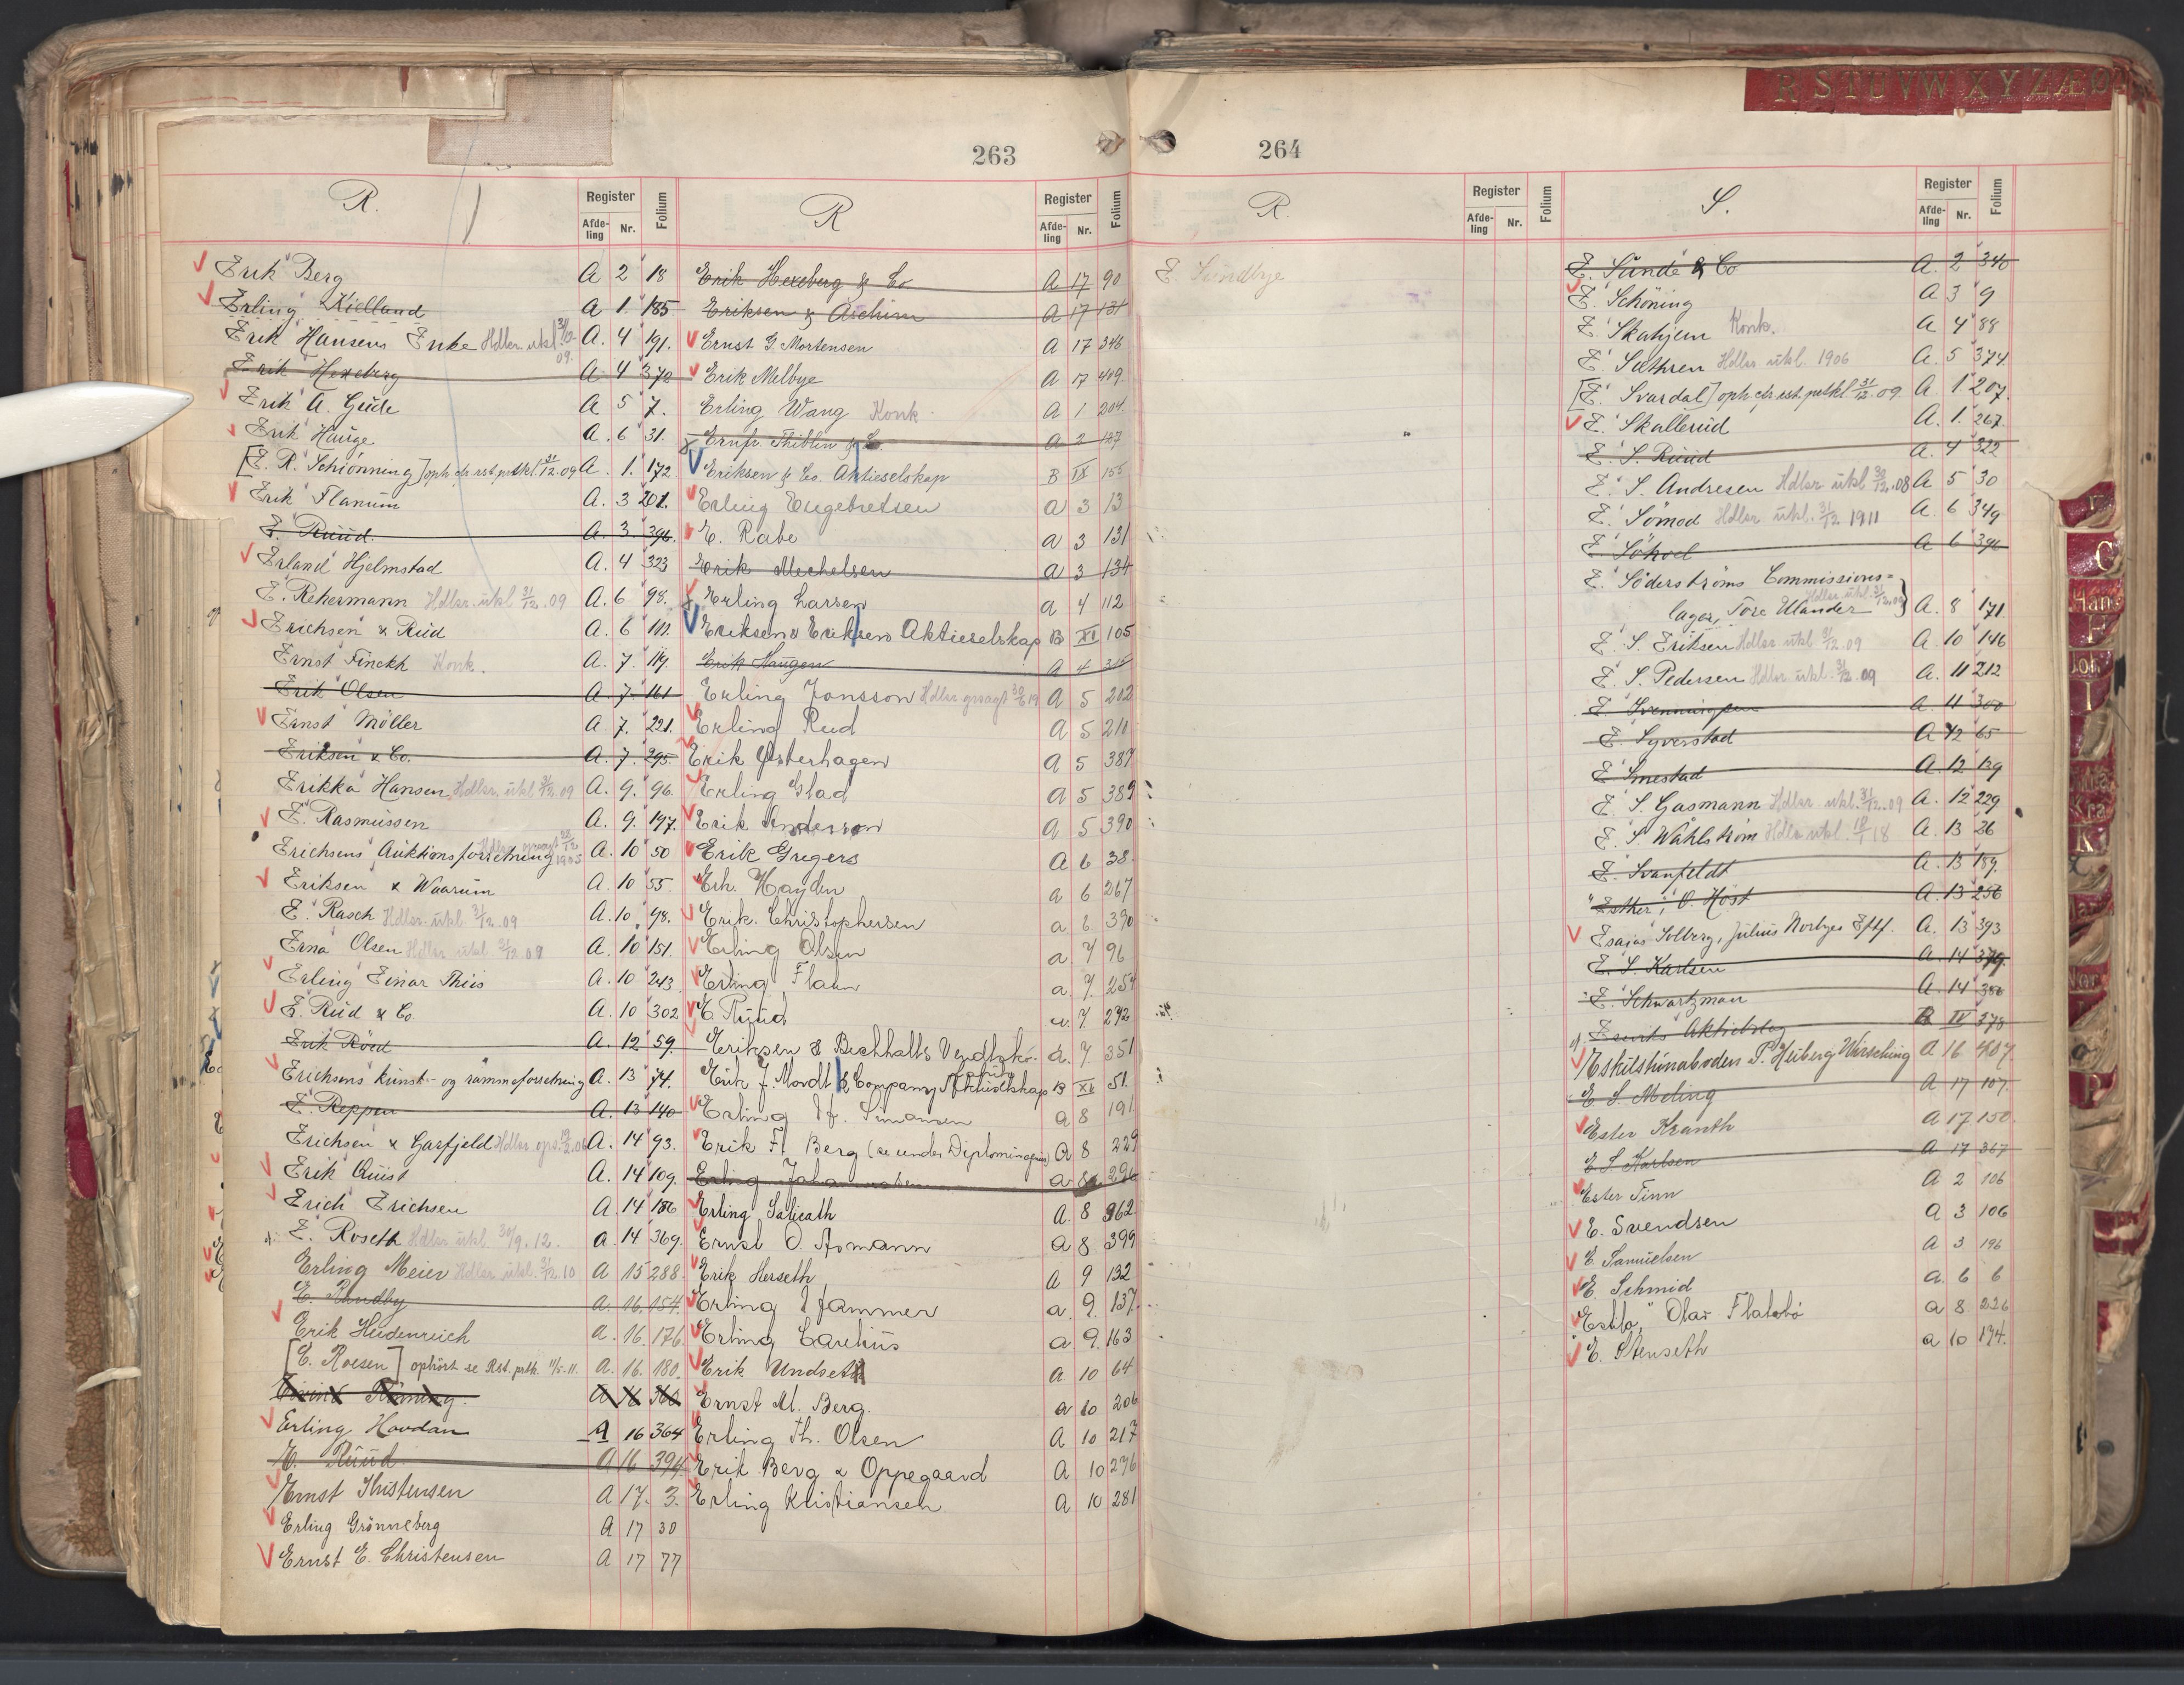 263
R.
Register
Afde-
ling
Nr.
Folium
Erik Berg A 2 18
Erling Kielland A 1. 185
Erik Hansens Enke Hdlsr. utkl. 31/12 09. A. 4 191.
Erik Hexeberg A 4 372
Erik A. Gude A 5 7.
Erik Hauge A. 6 31.
[E. R. Schiönning] oph. 31/12.09 A. 1. 172
Erik Flanum A. 3 201.
E. Ruud. A. 3. 396.
Erland Hjelmstad A. 4 323
E. Rehermann Hdlsr. utkl 31/12.09 A. 6 98.
Erichsen & Rud A. 6 111.
Ernst Finckh Konk. A. 7. 119.
Erik Olsen A. 7. 161
Ernst Möller A. 7. 221.
Eriksen & Co. A. 7. 295
Erikka Hansen Hdlsr. utkl 31/12 09 A. 9. 96.
E. Rasmussen A. 9. 197.
Erichsens Auktionsforretning 1905 A. 10 50
Eriksen & Waarum A. 10 55.
E. Rasch Hdlsr. utkl. 31/12.09 A. 10. 98.
Erna Olsen Hdlsr utkl 31/12 09 A. 10 151.
Erling Einar Thiis A. 10 243
E. Rud & Co. A. 10 302
Erik Röed A. 12 59.
Erichsens kunst- og rammeforretning A. 13 74.
E. Reppen A. 13 140
Erichsen & Garfjeld Hdlsr A. 14 93.
Erik Quist A. 14 109.
Erich Erichsen A. 14 186
E. Roseth Hdlsr utkl 30/9. 12. A. 14 369.
Erling Meier Hdlsr. utkl. 31/12.10 A 15 288.
E. Randby A. 16. 154.
Erik Heidenreich A. 16. 176.
[E. Roesen] ophört se Rst. prtk. 11/5-11. A. 16. 180.
A 16 360
Erling Hovdan A 16 364
E. Ruud. A 16 394
Ernst Kristensen A 17. 3.
Erling Grönneberg A 17 30
Ernst E. Christensen A 17 77
R
Register
Afde-
ling
Nr.
Folium
Erik Hexeberg & Co A 17 90
Eriksen & Aschim A 17 131
Ernst G. Mortensen A 17 346
Erik Melbye A 17 409.
Erling Wang Konk. A 1 204.
Ernfr. Thiblin & Co. A 2 127
Eriksen & Co. Aktieselskap B IX 155
Erling Engebretsen A 3 13
E. Rabe A 3 131
Erik Mechelsen A 3 134
Erling Larsen A 4 112
Eriksen & Eriksen Aktieselskap B XI 105
Erik Haugen A 4
Erling Jonsson Hdlsr A 5 202
Erling Rud A 5 211
Erik Østerhagen A 5 387
Erling Glad A 5 389
Erik Anderson A 5 390
Erik Gregers A 6 38.
Erh. Hayden A 6 267
Erik. Christophersen A 6. 390
Erling Olsen A 7 96
Erling Flaen A 7. 254
E Ruud A. 7. 292
Eriksen & Bechholts A. 7. 351
Erik J. Mordt & Company Aktieselskap B XI 51.
Erling Simonsen A 8 191
Erik Fr Berg (se under Diplomingeniör) A 8 229
Erling A 8 296
Erling Salicath A. 8 362
Ernst O. Asmann A 8 399
Erik Herseth A 9 132
Erling Hammer A. 9. 137.
Erling Carelius A 9. 163
Erik Undseth A 10 64
Ernst M. Berg. A 10 206
Erling Th. Olsen A 10 217
Erik Berg & Oppegaard A 10 276
Erling Kristiansen A 10 281
264
R.
Register
Afde-
ling
Nr.
Folium
E. Sundbye
S.
Register
Afde-
ling
Nr.
Folium
E. Sunde & Co A. 2 340
E. Schöning A 3 9
E. Skahjem Konk. A 4 88
E. Sæthren Hdlsr utkl. 1906 A. 5 374.
[E. Svardal] oph. 31/12.09 A. 1. 207.
E. Skallerud A. 1. 267.
E. S. Ruud A. 4 322
E. S. Andresen Hdlsr utkl 30/12.08 A 5 30
E. Sömod Hdlsr utkl. 31/12 1911 A. 6 349
E. A 6 396
E. Söderströms Commissions=
lager, Tore Ulander Hdlsr. utkl. 31/12.09 A. 8 171.
E. S. Eriksen Hdlsr utkl 31/12.09 A. 10 146
E. S. Pedersen Hdlsr utkl. 31/12.09 A. 11 212
E. Svenningsen A 11 300
E. Syverstad A 12 65
E. Smestad A. 12 139
E. S. Gasmann Hdlsr utkl. 31/12.09 A. 12 229
E. S. Wåhlström Hdlsr utkl. 18 A. 13 26
E. Svanfeldt A. 13 189.
"Esther", O. Höst A. 13 256
Esaias Solberg, Julius Norbyes Eftf. A. 13 393
E. S. Karlsen A. 14 379.
E. Schwartzman A. 14 386
Aktieselskap B IV 378
Eskilstunaboden P. Heiberg Wirsching A 16 407.
E. S. Meling A 17 107.
Ester Kranth A 17 150.
E. S. Karlsen A 17 367
Ester Finn A 2 106
E. Svendsen A 3 106
E. Samuelsen A 3 196
E. Schmid A. 6 6
"Estlo", Olav Flatabö A 8 226
E. Stenseth A 10 174.
R S T U V W X Y Z Æ Ø
C
Han
F
Joh
I
Kra
K
P